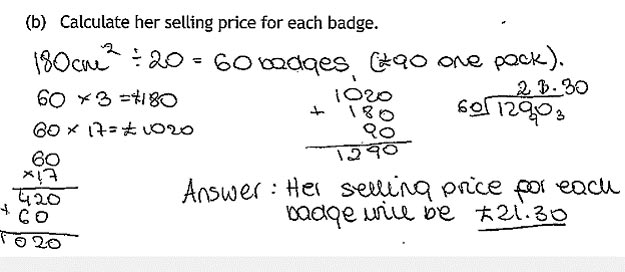 (b) Calculate her selling price for each badge.
180cm² ÷ 20 = 60 badges (£90 one pack).
60 × 3 = £180
60 × 17 = £1020
60
×17
420
+ 60
1020
1020
+ 180
90
1290
21.30
60√12903
Answer: Her selling price for each
badge will be £21.30